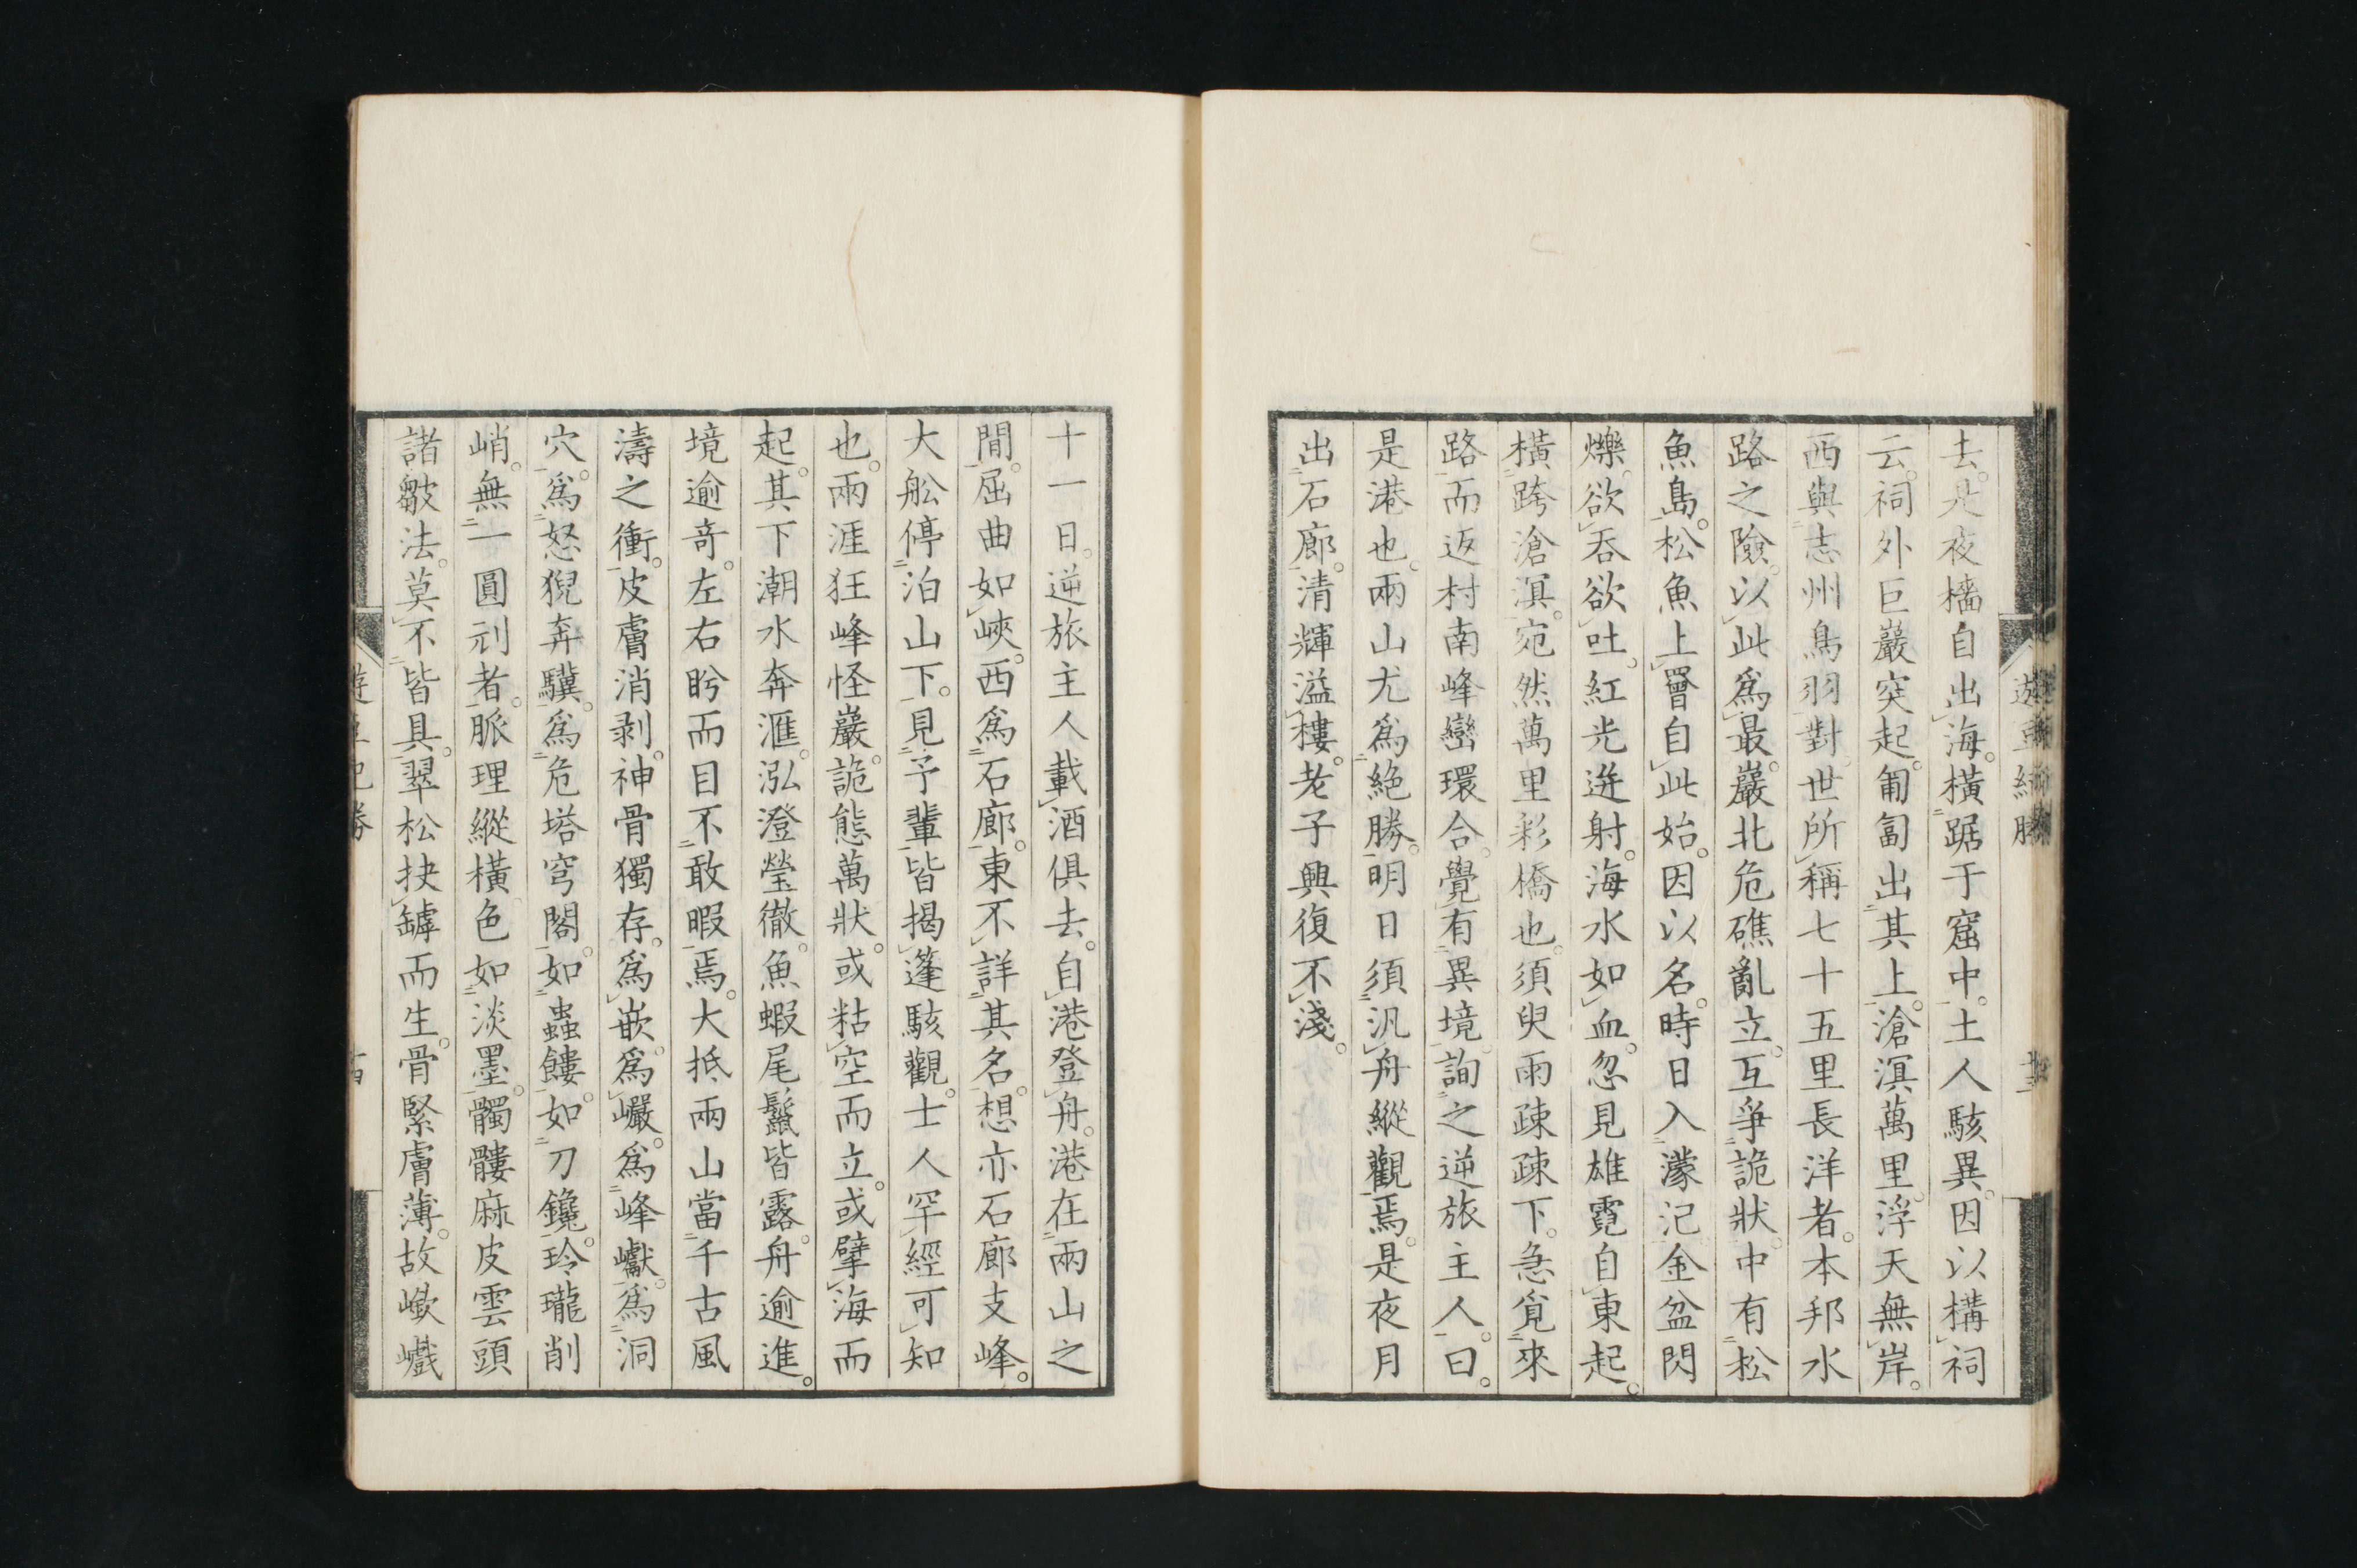 去。是夜檣自出海。橫踞于窟中。土人駭異。因以構祠
云。祠外巨巖突起。匍匐出其上。滄溟萬里。浮天無岸。
西與志州鳥羽對。世所稱七十五里長洋者。本邦水
路之險。以此爲最。巖北危礁亂立。互爭詭狀。中有松
魚島。松魚上罾自此始。因以名。時日入濛汜金盆閃
爍。欲吞欲吐。紅光迸射。海水如血。忽見雄霓自東起。
橫跨滄溟。宛然萬里彩橋也。須臾雨疎疎下。急覓來
路而返村南峰巒環合。覺有異境。詢之逆旅主人。曰。
是港也。兩山尤爲絕勝。明日須汎舟縱觀焉。是夜月
出石廊。清輝溢樓。老子興復不淺。
十一日。逆旅主人載酒俱去。自港登舟。港在兩山之
間。屈曲如峽。西爲石廊。東不詳其名。想亦石廊支峰。
大舩停泊山下。見予輩皆揭蓬駭觀。士人罕經可知
也。兩涯狂峰怪巖。詭態萬狀。或粘空而立。或擘海而
起。其下潮水奔滙。泓澄瑩徹。魚蝦尾鬣皆露。舟逾進。
境逾奇。左右盻而目不敢暇焉。大抵兩山當千古風
濤之衝。皮膚消剥。神骨獨存。爲嵌。爲巖。爲峰巘。爲洞
穴。爲怒猊奔驥。爲危塔穹閣。如蟲鏤。如刀鑱。玲瓏削
峭。無一圓刓者。脈理縱橫。色如淡墨。髑髏麻皮雲頭
諸皴法。莫不皆具。翠松抉罅而生。骨緊膚薄。故嶔巇